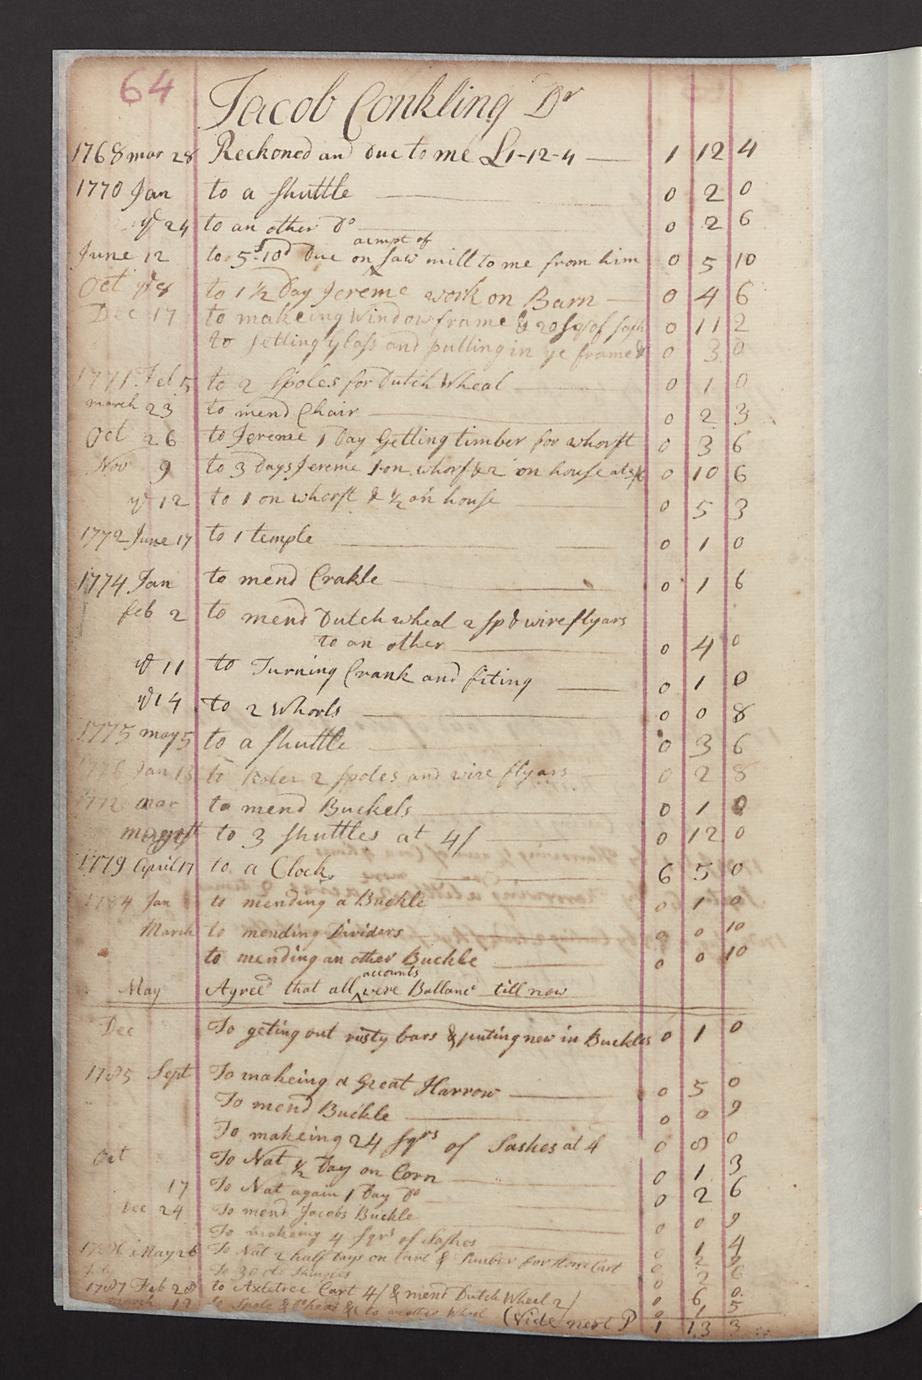 64
Jacob Conkling Dr
1768 mar 28 Reckoned and Due to me L1-12-4 1 12 4
1770 Jan to a Shuttle 0 2 0
ye 24 to an other Do 0 2 6
acmpt of
June 12 to 5s10d Due on Saw mill to me from him 0 5 10
Oct ye 8 to 1 ½ Day Jereme work on Barn 0 4 6
Dec 17 to makeing Window frame & 20 sqs of sash 0 11 2
to setting glass and putting in ye frame 0 3 0
1771 Feb 5 to 2 Spoles for Dutch Wheal 0 1 0
march 23 to mend Chair 0 2 3
Oct 26 to Jereme 1 Day Getting timber for whorft 0 3 6
Nov 9 to 3 Days Jereme 1 on whorf & 2 on house at 3/6 0 10 6
ye 12 to 1 on whorft & ½ on house 0 5 3
1772 June 17 to 1 temple 0 1 0
1774 Jan to mend Crakle 0 1 6
feb 2 to mend Dutch wheal 2 sp & wire flyars
to an other 0 4 0
ye 11 to Turning Crank and fiting 0 1 0
ye 14 to 2 Whorls 0 0 8
1775 may 5 to a Shuttle 0 3 6
1776 Jan 13 to 2 spoles and wire flyars 0 2 8
mar to mend Buckels 0 1 0
to 3 Shuttles at 4/ 0 12 0
1779 April 17 to a Clock 6 5 0
1784 Jan to mending a Buckle 0 1 0
March to mending Dividers 0 0 10
to mending an other Buckle 0 0 10
accounts
May Agreed that all were Ballancd till now
Dec To geting out rusty bars & puting new in Buckles 0 1 0
1785 Sept To makeing a Great Harrow 0 5 0
To mend Buckle 0 0 9
To makeing 24 sqrs of Sashes at 4 0 8 0
Oct To Nat ½ Day on Corn 0 1 3
17 To Nat again 1 Day Do 0 2 6
Dec 24 To mend Jacobs Buckle 0 0 9
To makeing 4 sqrs of Sashes 0 1 4
1786 May 26 To Nat 2 half days on Cart & timber for Horse Cart 0 2
To 30 Shingles 0 2 6
1787 Feb 28 to Axletree Cart 4/ & mend Dutch Wheel 2/ 0 6 0
march 12 to Spole & to another Wheel 0 1 5
(Vide next P 1 13 3